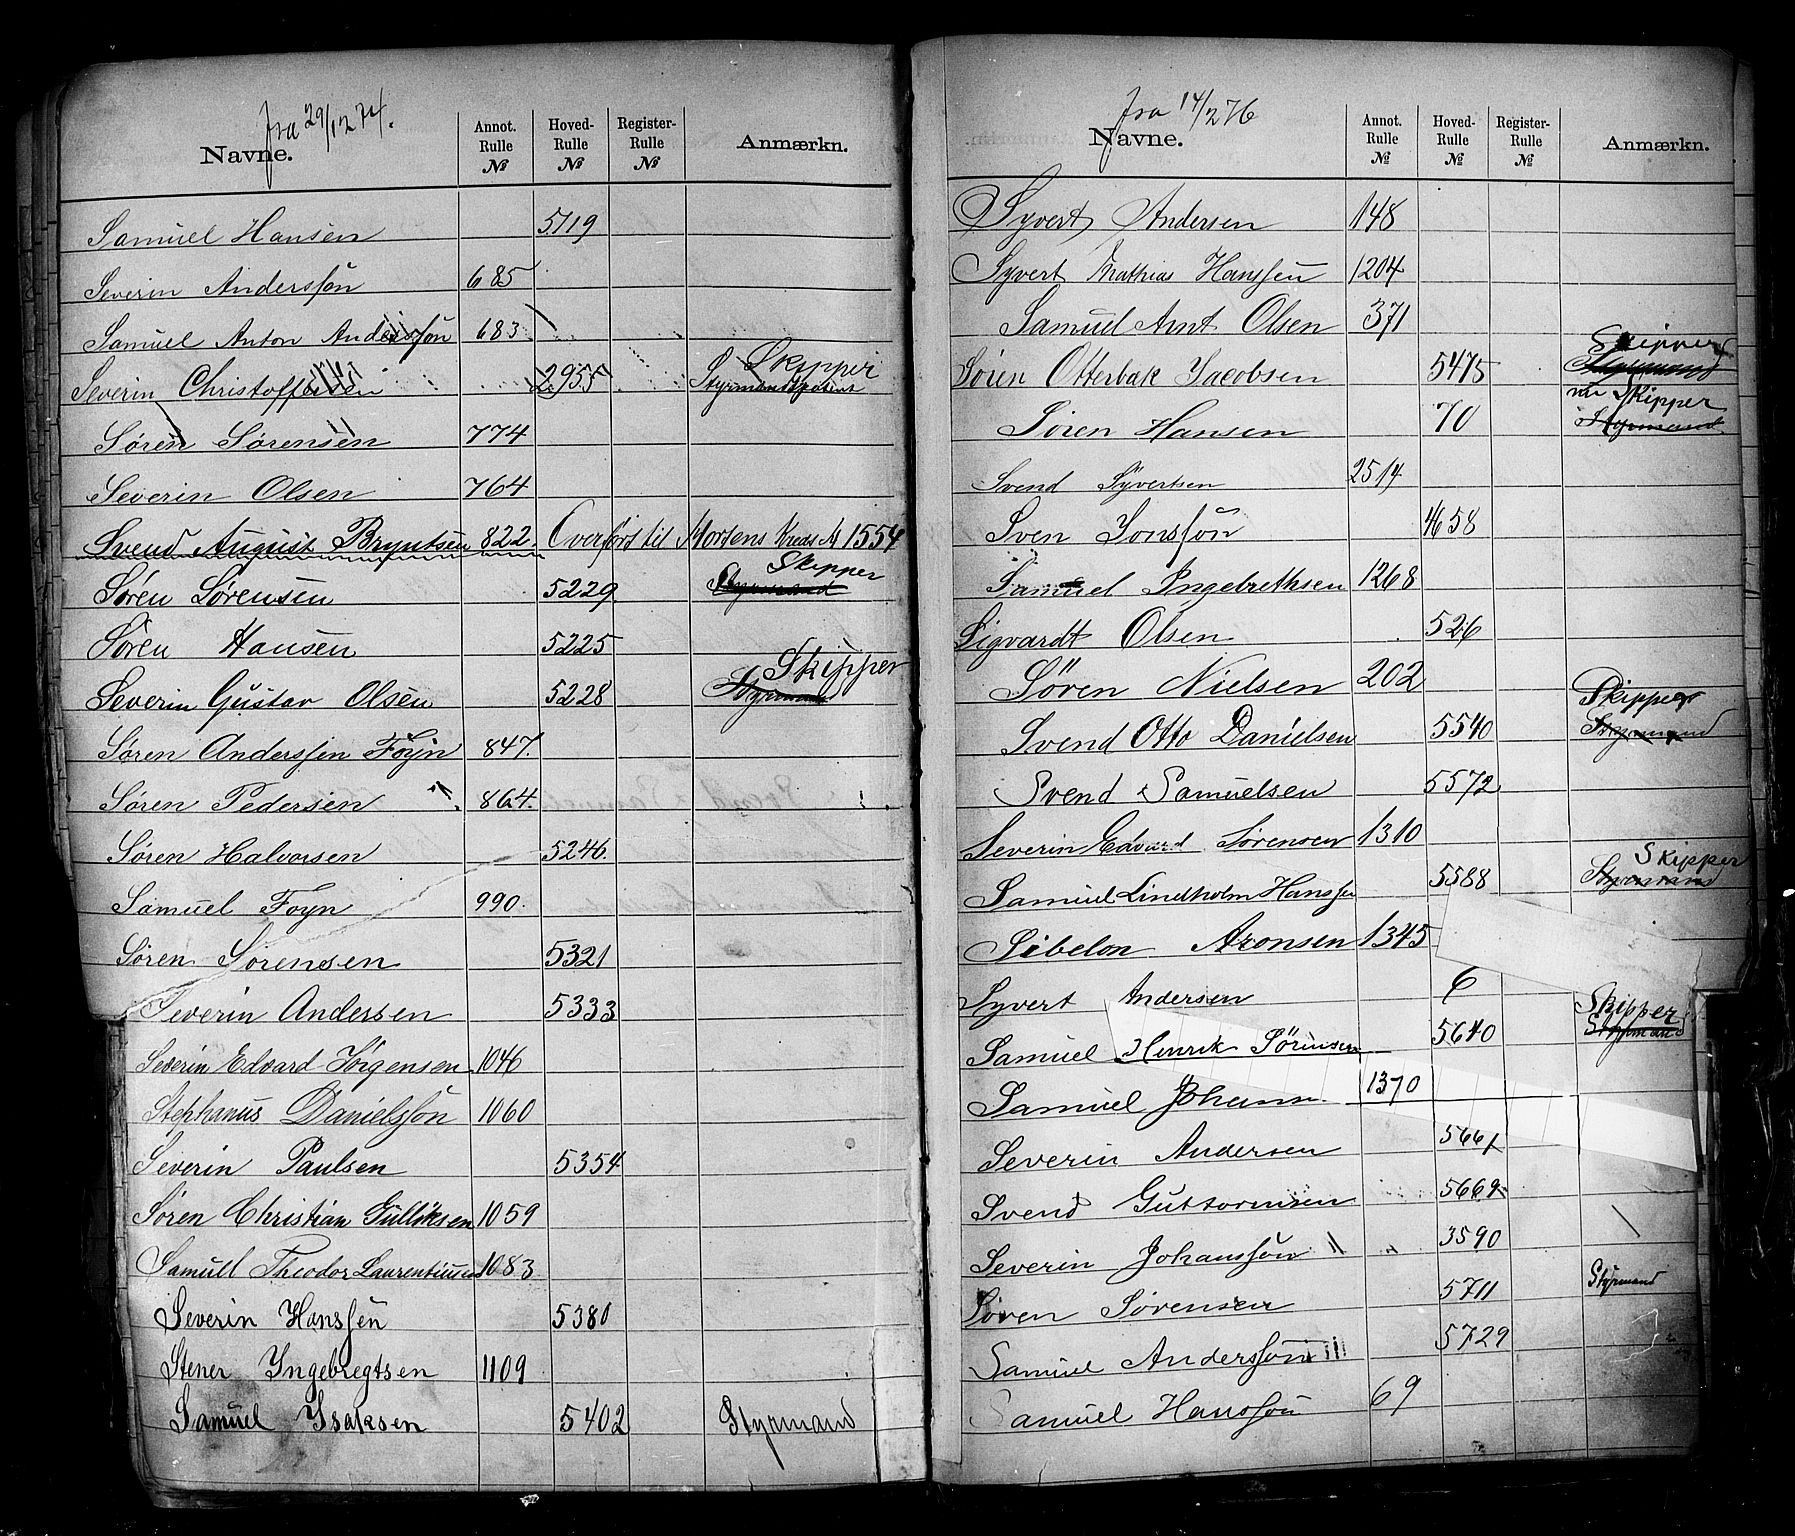 fra 29/12 74.
Navne. Annot. Rulle № Hoved-Rulle № Register-Rulle № Anmærkn.
Samuel Hansen 5119
Severin Anderssøn 685
Samuel Anton Anderssøn 683
Severin Christoffersen 2955 Skipper Styrmandspatent
Søren Sørensen 774
Severin Olsen 764
Svend August Bryntsen 822. Overført til Hortens Kreds № 1554
Søren Sørensen 5229 Styrmand Skipper
Søren Hansen 5225
Severin Gustav Olsen 5228 Styrmand Skipper
Søren Anderssen Foyn 847.
Søren Pedersen 864.
Søren Halvorsen 5246.
Samuel Foyn 990.
Søren Sørensen 5321
Severin Andersen 5333
Severin Edvard Jörgensen 1046
Stephanus Danielssön 1060
Severin Paulsen 5354
Søren Christian Gulliksen 1059
Samuel Theodor Laurentiussen 1083
Severin Hanssen 5380
Stener Ingebregtsen 1109
Samuel Isaksen 5402 Styrmand
fra 14/2 76
Navne. Annot. Rulle № Hoved-Rulle № Register-Rulle № Anmærkn.
Syvert Andersen 148
Syvert Mathias Hanssen 1204
Samuel Arnt Olsen 371
Søren Otterbak Jacobsen 5475 Styrmand Skipper
Søren Hansen 70 Styrmand Skipper
Svend Syvertsen 2514
Sven Jonssøn 4658
Samuel Ingebrethsen 1268
Sigvardt Olsen 526
Sören Nielsen 202
Svend Otto Danielsen 5540 Styrmand Skipper
Svend Samuelsen 5572
Severin Edvard Sørensen 1310
Samuel Lindholm Hanssen 5588 Styrmand Skipper
Sibelon Aronsen 1345
Syvert Andersen 6
Samuel Henrik Sörensen 5640 Styrmand Skipper
Samuel Johann 1370
Severin Andersen 5661
Svend Guttormsen 5669
Severin Johanssøn 3590
Søren Sørensen 5711 Styrmand
Samuel Anderssøn 5729
Samuel Hanssøn 69